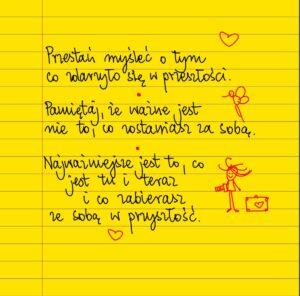 Przestań myśleć o tym
co zdarzyło się w przeszłości.
Pamiętaj, że ważne jest
nie to, co zostawiasz za sobą.
Najważniejsze jest to, co
jest tu i teraz
i co zabierasz
ze sobą w przyszłość.